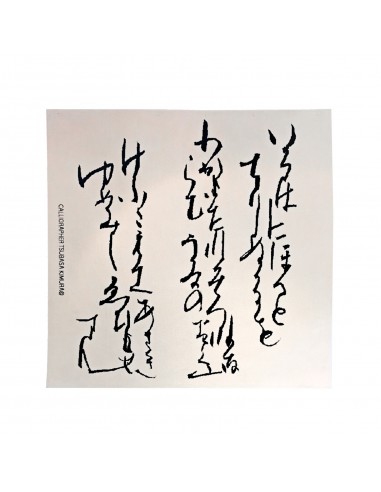 いろは にほへと
ちりぬるを
わかよたれそつねな
らむ うゐの おくやま
けふこえて あさき
ゆめみし ゑひもせ
すん
CALLIGRAPHER TSUBASA KIMURA©